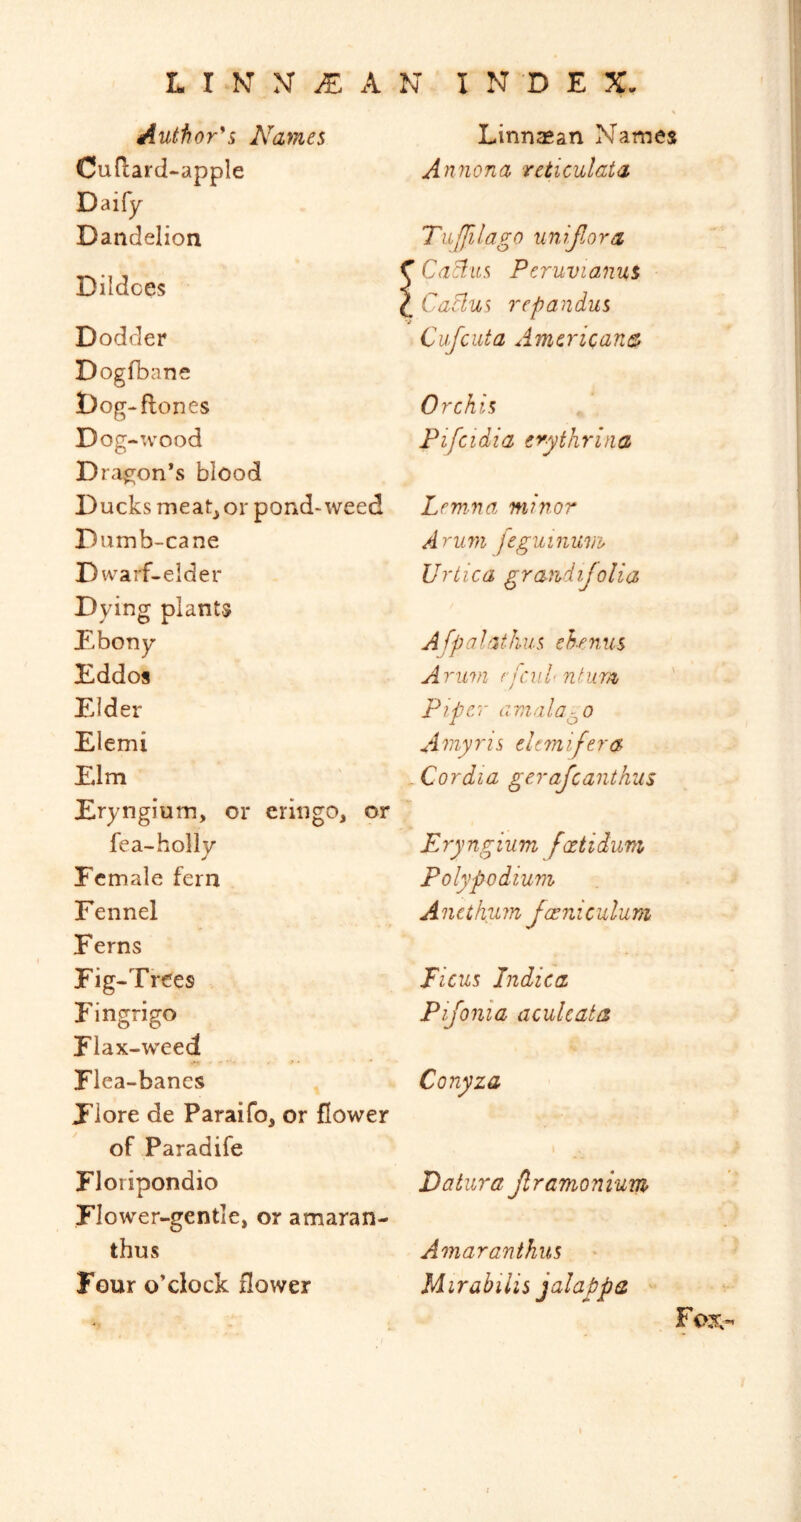 LINNÆAN INDEX.
Author's Names Linnæan Names
Cuſtard-apple Annona reticulata
Daiſy
Dandelion Tuſſilago uniflora
Dildoes { Cactus Peruvianus
Cactus repandus
Dodder Cuſcuta Americana
Dogſbane
Dog-ſtones Orchis
Dog-wood Piſcidia erythrina
Dragon's blood
Ducks meat, or pond-weed Lemna minor
Dumb-cane Arum ſeguinum
Dwarf-elder Urtica grandifolia
Dying plants
Ebony Aſpalathus ebenus
Eddos Arum eſculentum
Elder Piper amalago
Elemi Amyris elemifera
Elm Cordia geraſcanthus
Eryngium, or eringo, or
ſea-holly Eryngium fœtidum
Female fern Polypodium
Fennel Anethum fœniculum
Ferns
Fig-Trees Ficus Indica
Fingrigo Piſonia aculeata
Flax-weed
Flea-banes Conyza
Fiore de Paraiſo, or flower
of Paradiſe
Floripondio Datura ſtramonium
Flower-gentle, or amaran-
thus Amaranthus
Four o'clock flower Mirabilis jalappa
Fox-